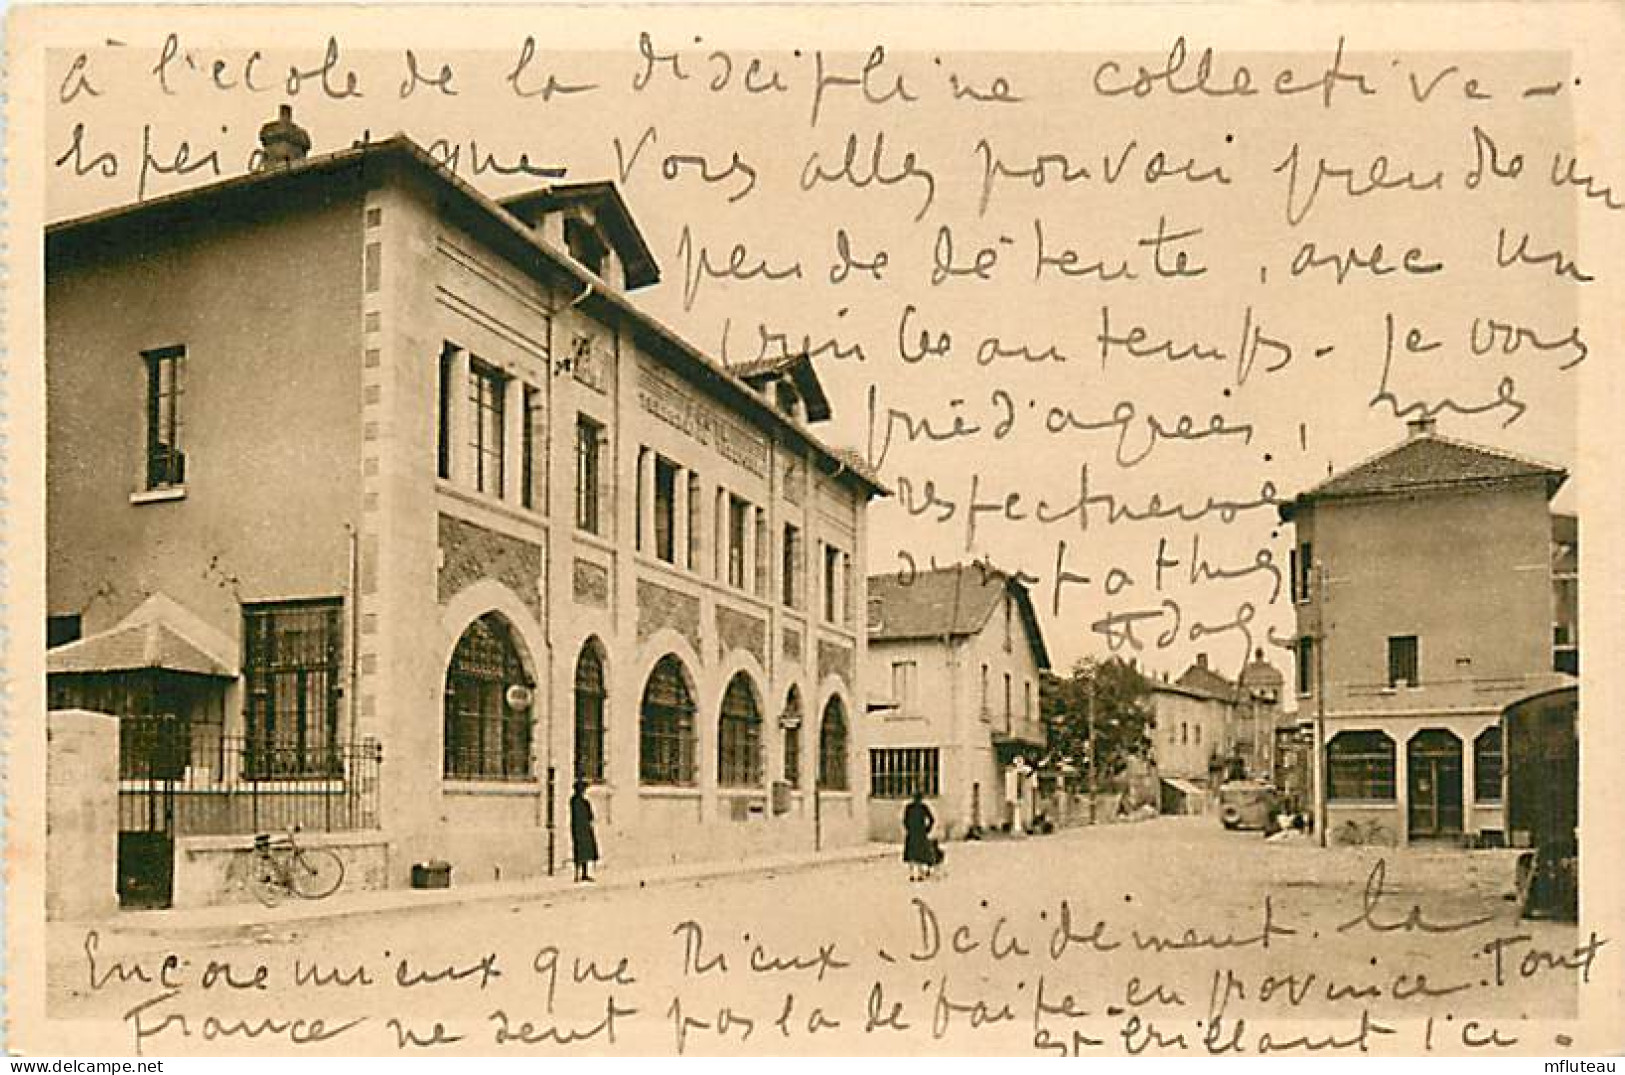 à l'école de la discipline collective -
Espérant que vous allez pouvoir prendre un
peu de détente, avec un
beau temps - Je vous
prie d'agréer, mes
respectueuses
sympathies
Encore mieux que Rieux. Décidément la
France ne sent pas la défaite en province. Tout
est brillant ici.
mfluteau